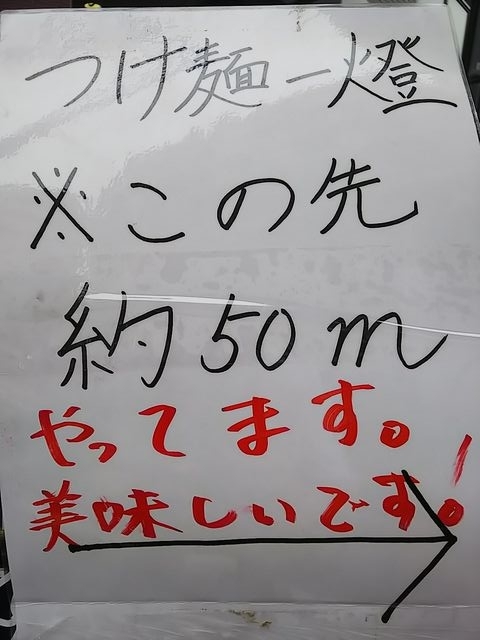 つけ麺一燈
※この先
約50m
やってます。
美味しいです!